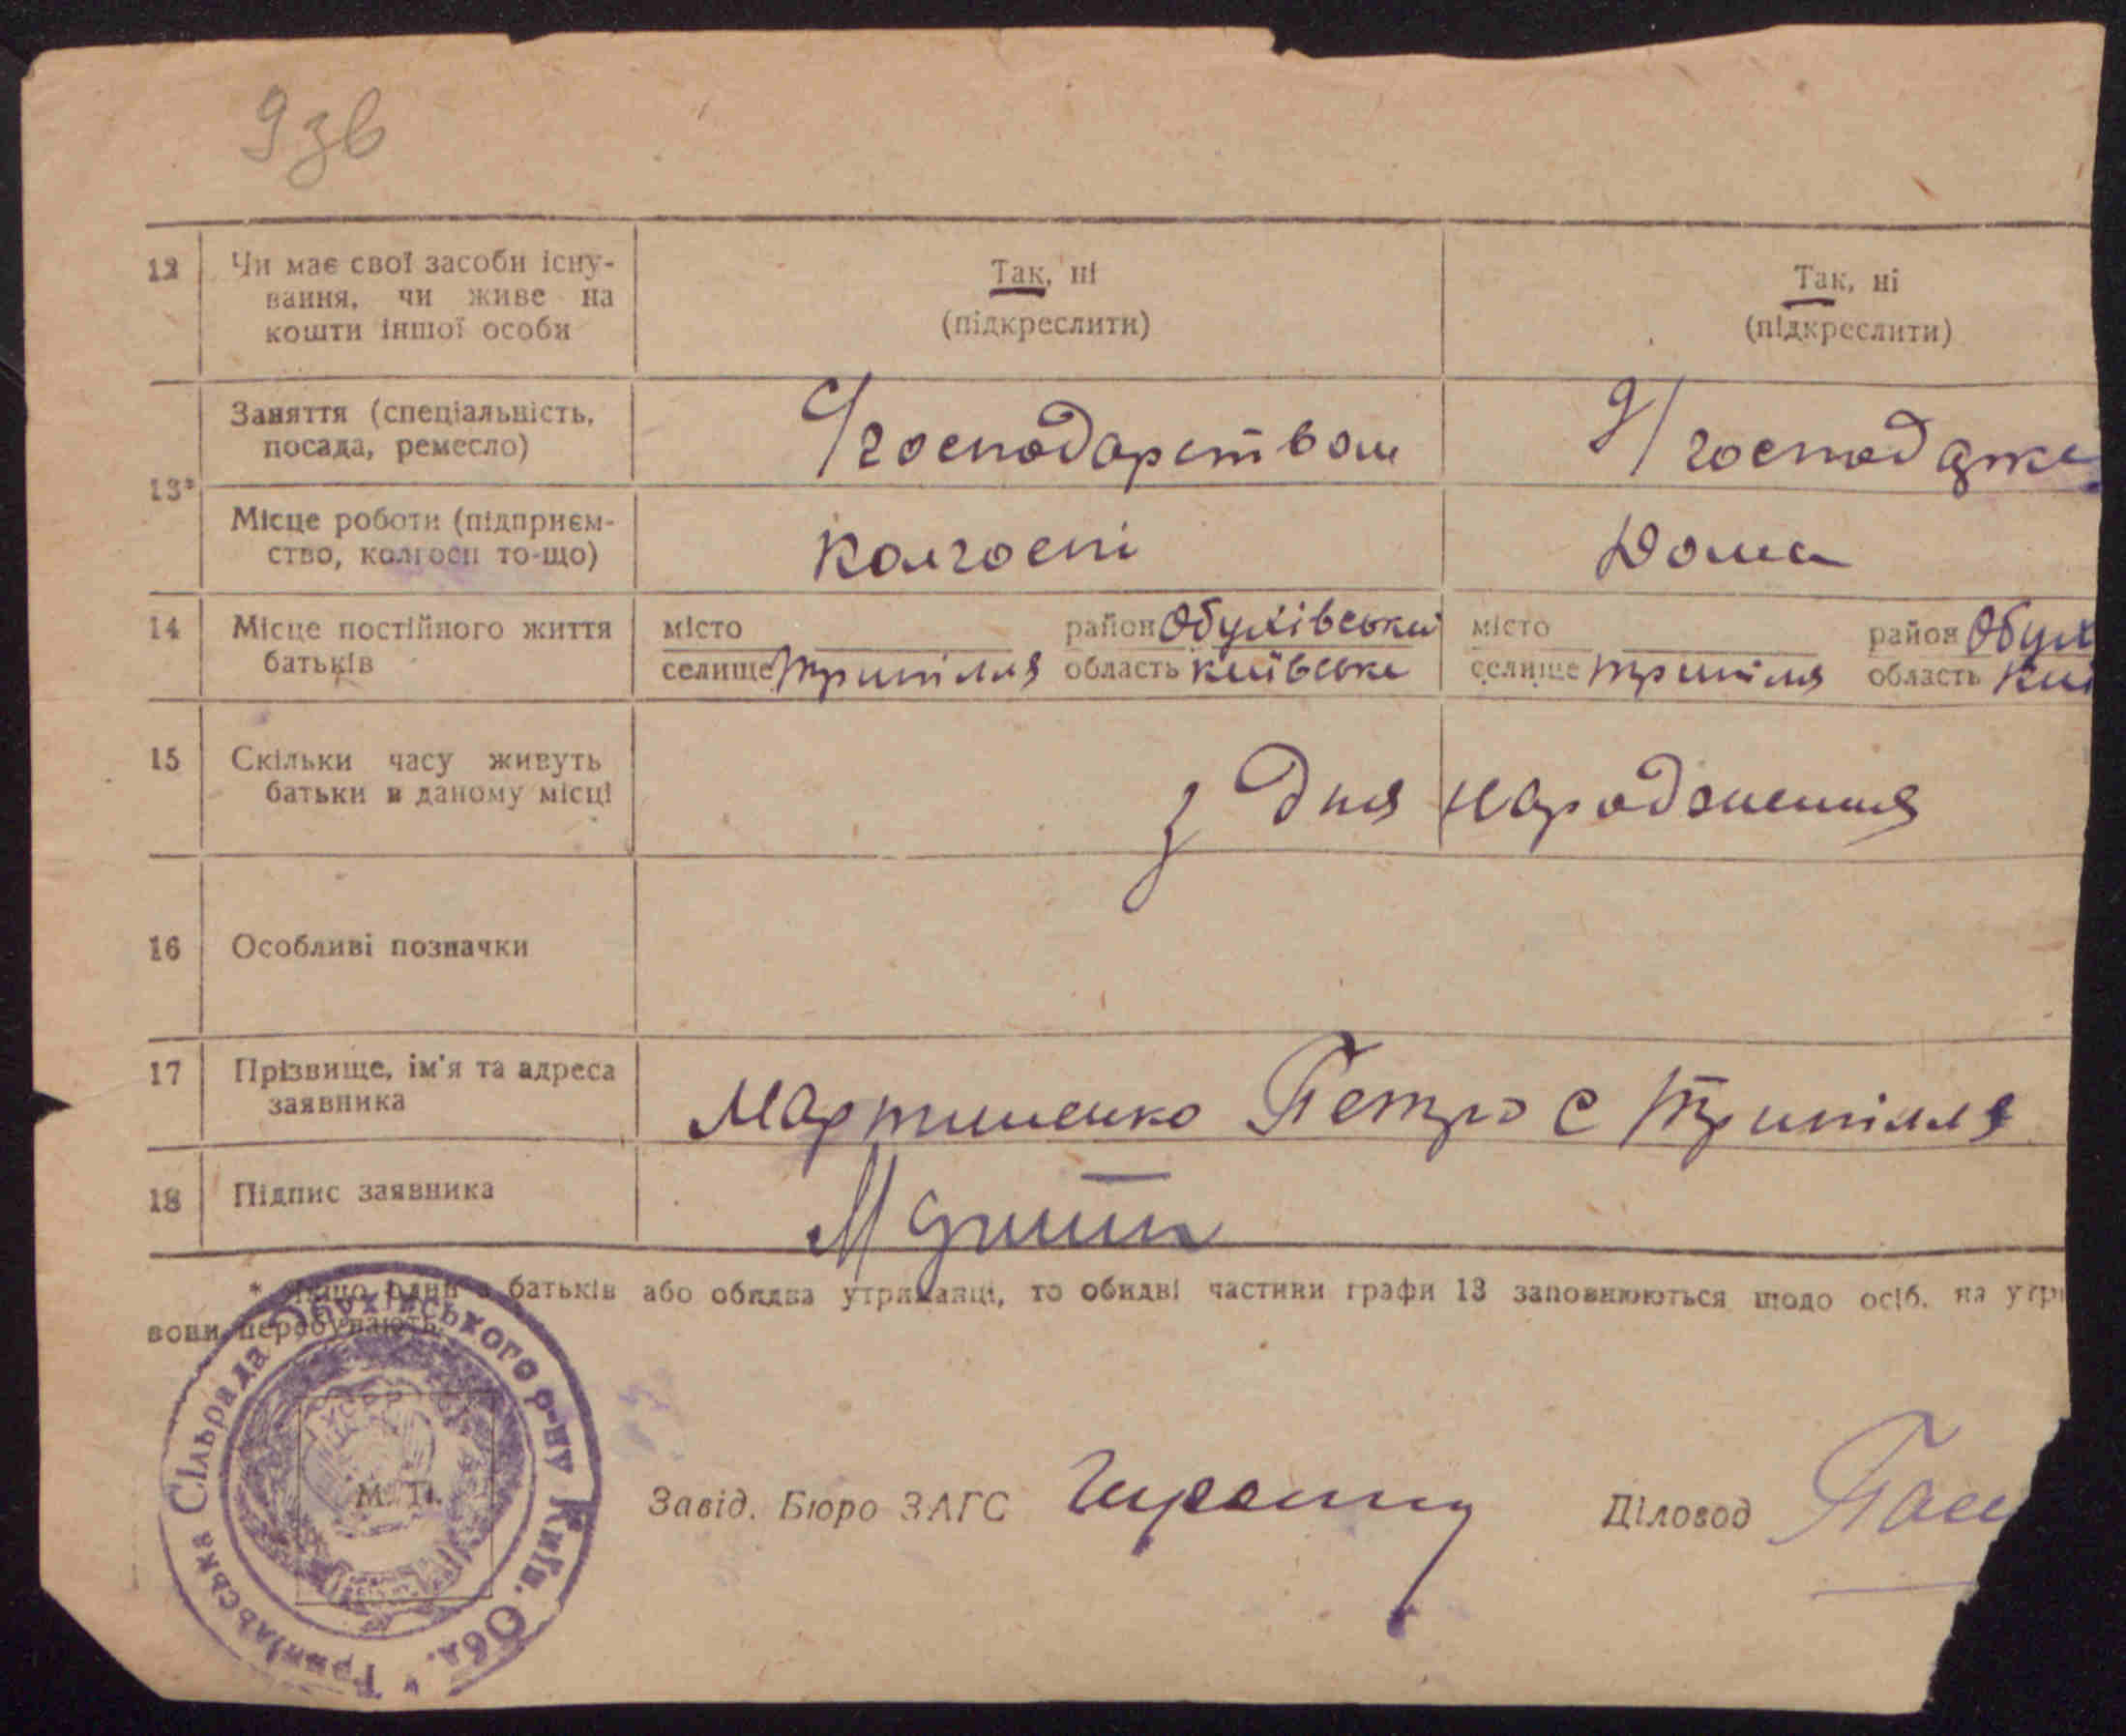 9зв
12 Чи має свої засоби існу-
вання, чи живе на
кошти іншої особи
Так, ні
(підкреслити)
Так, ні
(підкреслити)
13*
Заняття (спеціальність,
посада, ремесло)
С/господарством
Д/господарк
Місце роботи (підприєм-
ство, колгосп то-що)
колгоспі
Дома
14 Місце постійного життя
батьків
місто
селище Трипілля
район Обухівський
область Київська
місто
селище Трипілля
район Обух
область Киї
15 Скільки часу живуть
батьки в даному місці
з Дня народження
16 Особливі позначки
17 Прізвище, ім'я та адреса
заявника
Мартиненко Петро С Трипілля
18 Підпис заявника
* Якщо один з батьків або обидва утриманці, то обидві частини графи 13 заповнюються щодо осіб, на утри
вони перебувають.
Трипільська Сільрада Обухівського р-ну Київ. Обл.
М. П.
Завід. Бюро ЗАГС
Діловод